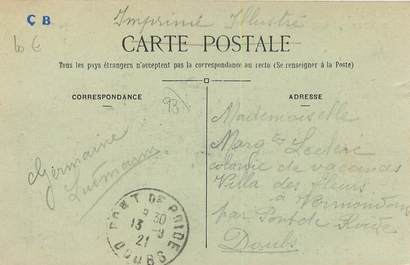 ÇB
Imprimé Illustré
10 €
CARTE POSTALE
Tous les pays étrangers n'acceptent pas la correspondance au recto (Se renseigner à la Poste)
CORRESPONDANCE
ADRESSE
Germaine
931
Mademoiselle
Marg te Leclerc
colonie de vacances
Villa des fleurs
à
par Pont de Roide
Doubs
PONT DE ROIDE
30
13-9
21
DOUBS